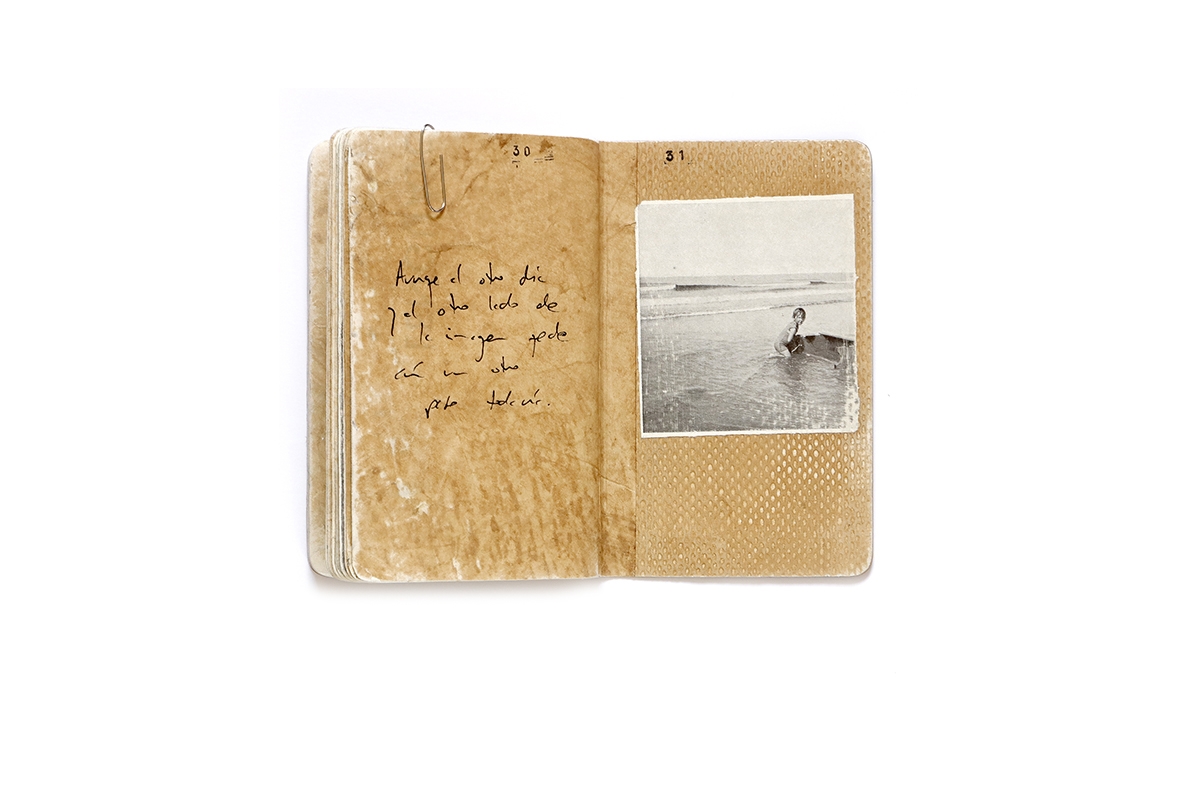 30
Aunque el otro día
y el otro lado de
la imagen quede
un otro
todavía.
31